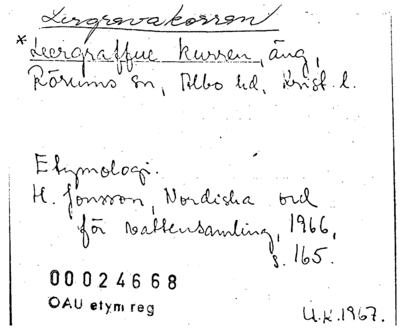 Lergravakorren
*Leergraffue kurren, äng,
Rörums sn, Albo hd, Krist. l.
Etymologi.
H. Jonsson, Nordiska ord
för vattensamling, 1966,
s. 165.
00024668
OAU etym reg
U.K. 1967.